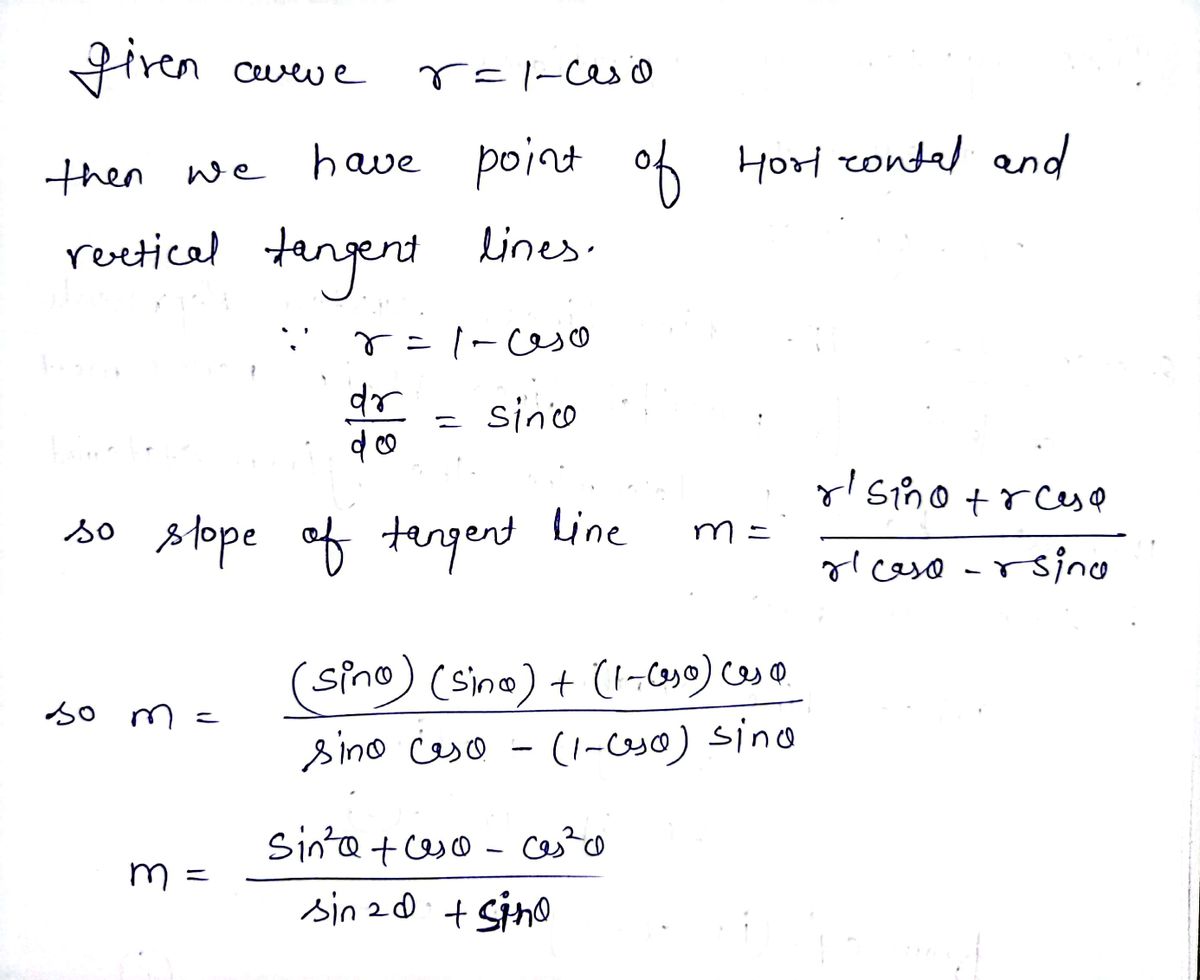 given curve r = 1 - cosθ
then we have point of Horizontal and
vertical tangent lines.
∵ r = 1 - cosθ
dr/dθ = sinθ
so slope of tangent line m = (r' sinθ + r cosθ)/(r' cosθ - r sinθ)
so m = ((sinθ)(sinθ) + (1-cosθ) cosθ)/(sinθ cosθ - (1-cosθ) sinθ)
m = (sin²θ + cosθ - cos²θ)/(sin2θ + sinθ)